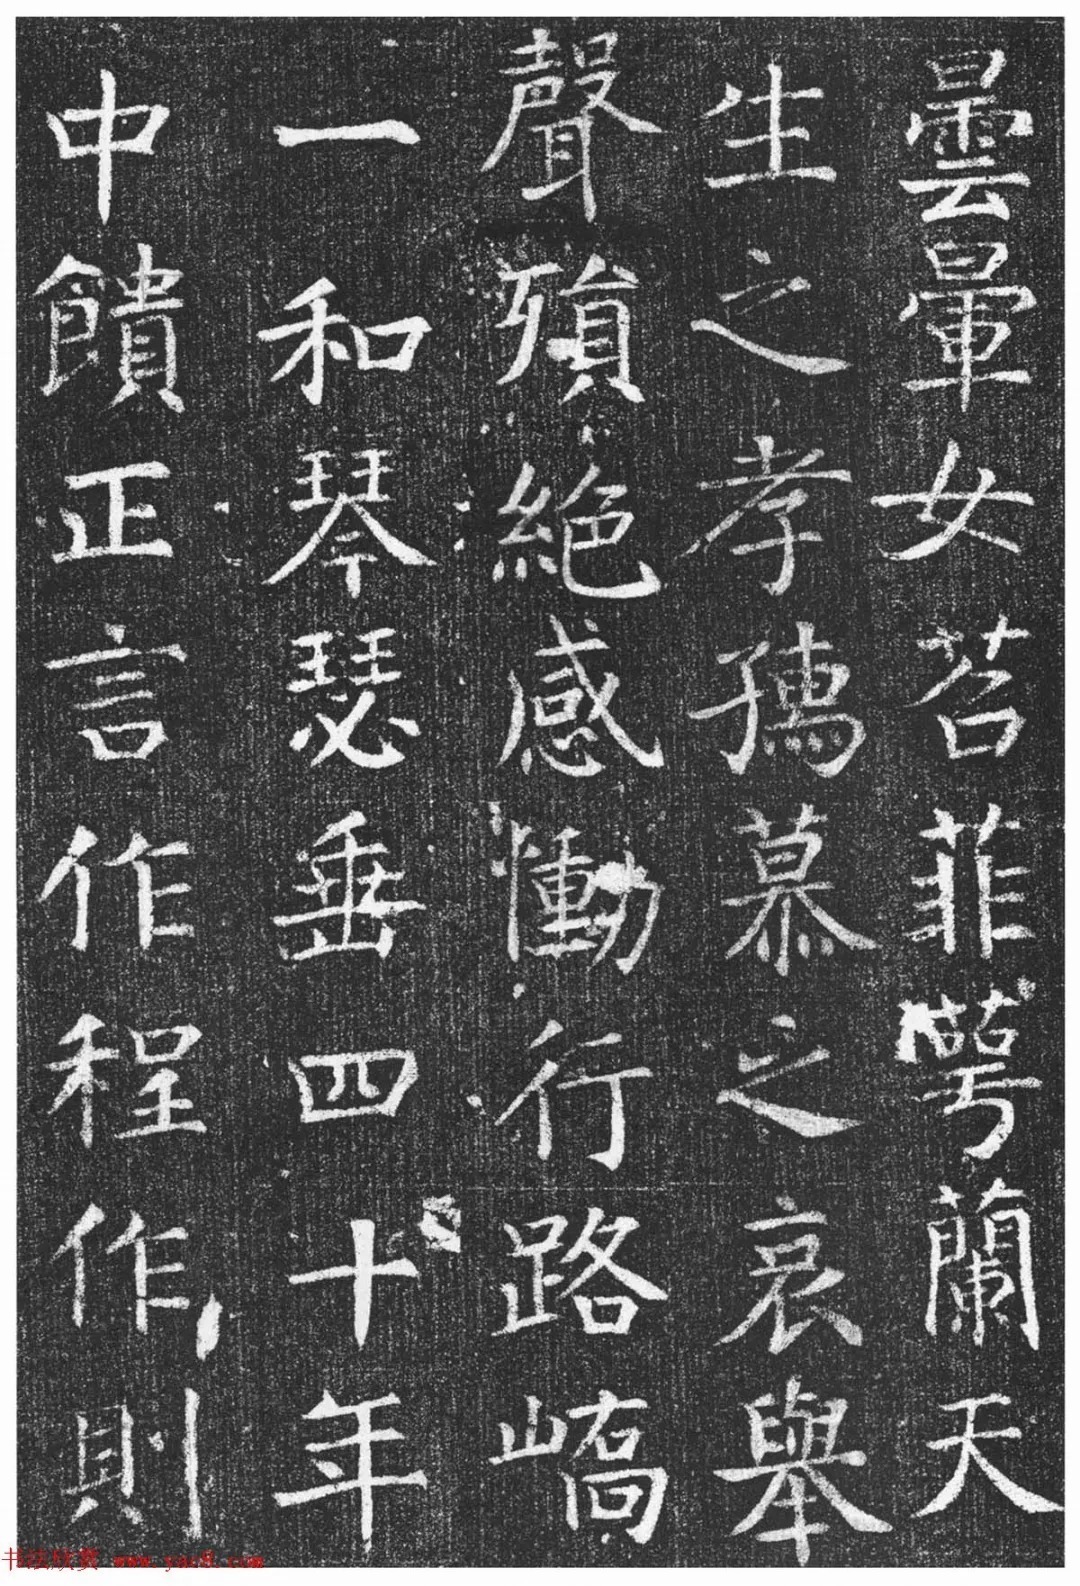 曇暈女苕菲萼蘭天
生之孝孺慕之哀舉
聲殞絕感慟行路嶠
一和琴瑟垂四十年
中饋正言作程作則
书法欣赏 www.yac8.com